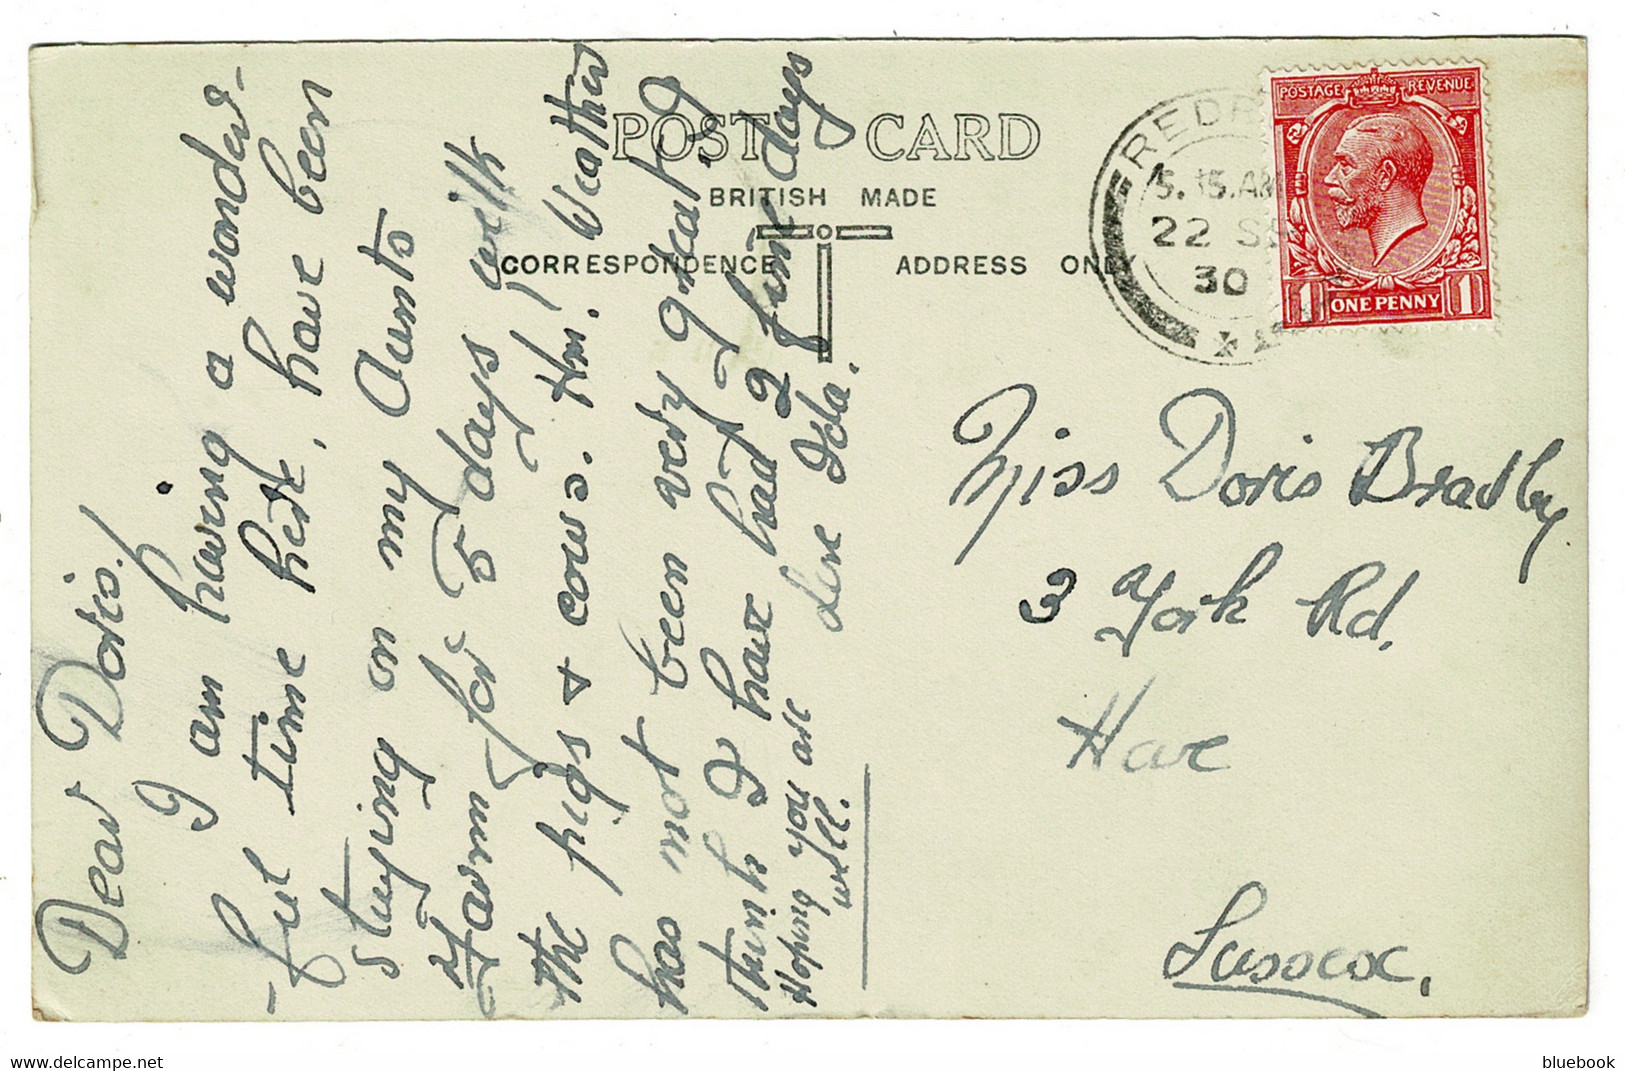 POST CARD
BRITISH MADE
CORRESPONDENCE
ADDRESS ONL
Dear Doris!
I am having a wonder-
-ful time here, have been
staying on my Aunts
Farm for 5 days with
the pigs & cows. Hm! Weather
has not been very great, I
think I have had 2 fine days
Hoping you are
well.
Love Ida.
REDR
5.15.AM
22 SE
30
POSTAGE REVENUE
1 ONE PENNY 1
Miss Doris Bradley
3 York Rd.
Hove
Sussex.
delcampe.net
bluebook